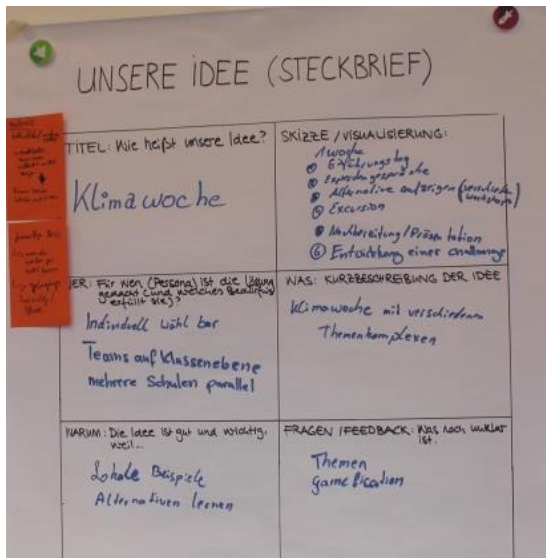 UNSERE IDEE (STECKBRIEF)
TITEL: Wie heißt unsere Idee?
Klimawoche
SKIZZE / VISUALISIERUNG:
1 Woche
Einführungstag
Expertengespräche
Alternative aufzeigen (verschiedene Workshops)
Excursion
Nachbereitung/Präsentation
⑥ Entwicklung einer challenge
WER: Für wen (Persona) ist die Lösung
gedacht (und welches Bedürfnis
erfüllt sie)?
Individuell wählbar
Teams auf Klassenebene
mehrere Schulen parallel
WAS: KURZBESCHREIBUNG DER IDEE
Klimawoche mit verschiedenen
Themenkomplexen
WARUM: Die Idee ist gut und wichtig,
weil...
Lokale Beispiele
Alternativen lernen
FRAGEN / FEEDBACK: Was noch unklar
ist.
Themen
gamefication